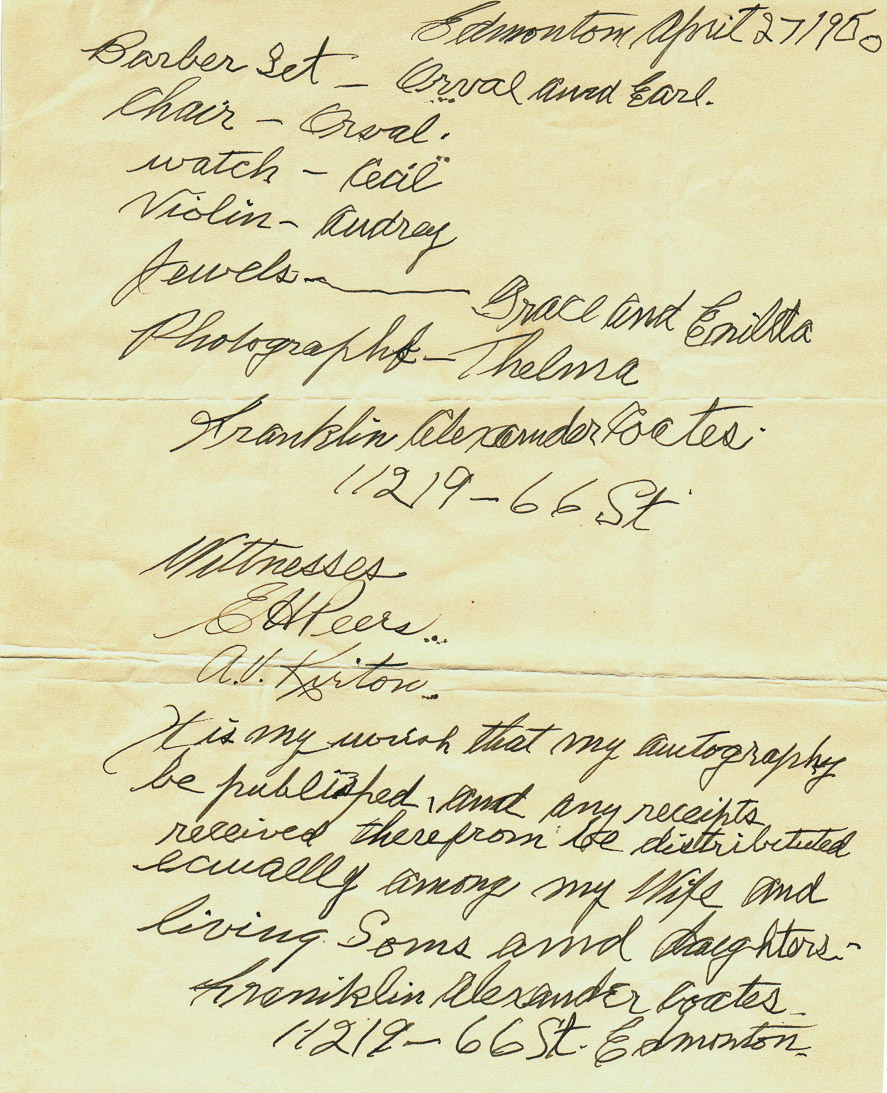 Edmonton April 27 1950
Barber Set – Orval and Earl.
Chair – Orval.
watch – Cecil
Violin – Audrey
Jewels – Grace and
Photographs – Thelma
Franklin Alexander Coates.
11219 – 66 St
Wittnesses
E H Peers
A.V. Kirton
It is my wish that my autography
be published, and any receipts
received therefrom be distributed
ecually among my Wife and
living Sons and daughters.
Franiklin Alexander Coates
11219 – 66 St. Edmonton.